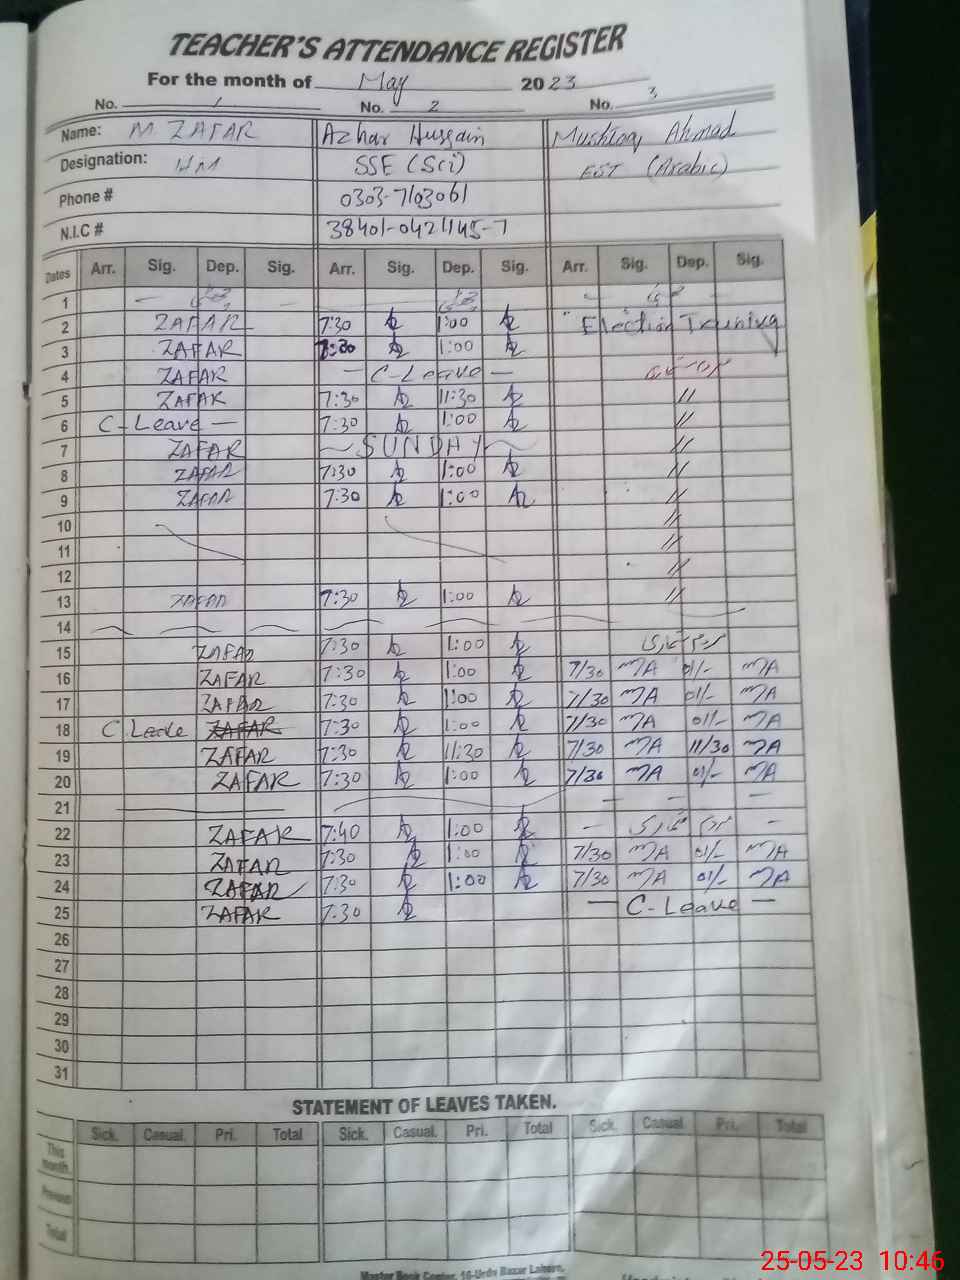 TEACHER'S ATTENDANCE REGISTER
For the month of May 2023
No. 1 No. 2 No. 3
Name: M. ZAFAR Azhar Hussain Mushtaq Ahmad
Designation: HM SSE (Sci) EST (Arabic)
Phone # 0303-7103061
N.I.C # 38401-0421145-7
Dates Arr. Sig. Dep. Sig. Arr. Sig. Dep. Sig. Arr. Sig. Dep. Sig.
1
2 ZAFAR 7:30 1:00 Election Training
3 ZAFAR 7:30 1:00
4 ZAFAR — C-Leave —
5 ZAFAR 7:30 11:30 //
6 C-Leave — 7:30 1:00 //
7 ZAFAR SUNDAY //
8 ZAFAR 7:30 1:00 //
9 ZAFAR 7:30 1:00 //
10 //
11 //
12 //
13 ZAFAR 7:30 1:00 //
14
15 ZAFAR 7:30 1:00
16 ZAFAR 7:30 1:00 7/30 MA 01/- MA
17 ZAFAR 7:30 1:00 7/30 MA 01/- MA
18 C Leave ZAFAR 7:30 1:00 7/30 MA 01/- MA
19 ZAFAR 7:30 11:30 7/30 MA 11/30 MA
20 ZAFAR 7:30 1:00 7/30 MA 01/- MA
21
22 ZAFAR 7:40 1:00
23 ZAFAR 7:30 1:00 7/30 MA 01/- MA
24 ZAFAR 7:30 1:00 7/30 MA 01/- MA
25 ZAFAR 7:30 — C-Leave —
26
27
28
29
30
31
STATEMENT OF LEAVES TAKEN.
Sick. Casual. Pri. Total Sick. Casual. Pri. Total Sick. Casual Pri. Total
This month.
Previous
Total
Master Book Center, 16-Urdu Bazar Lahore.
25-05-23 10:46